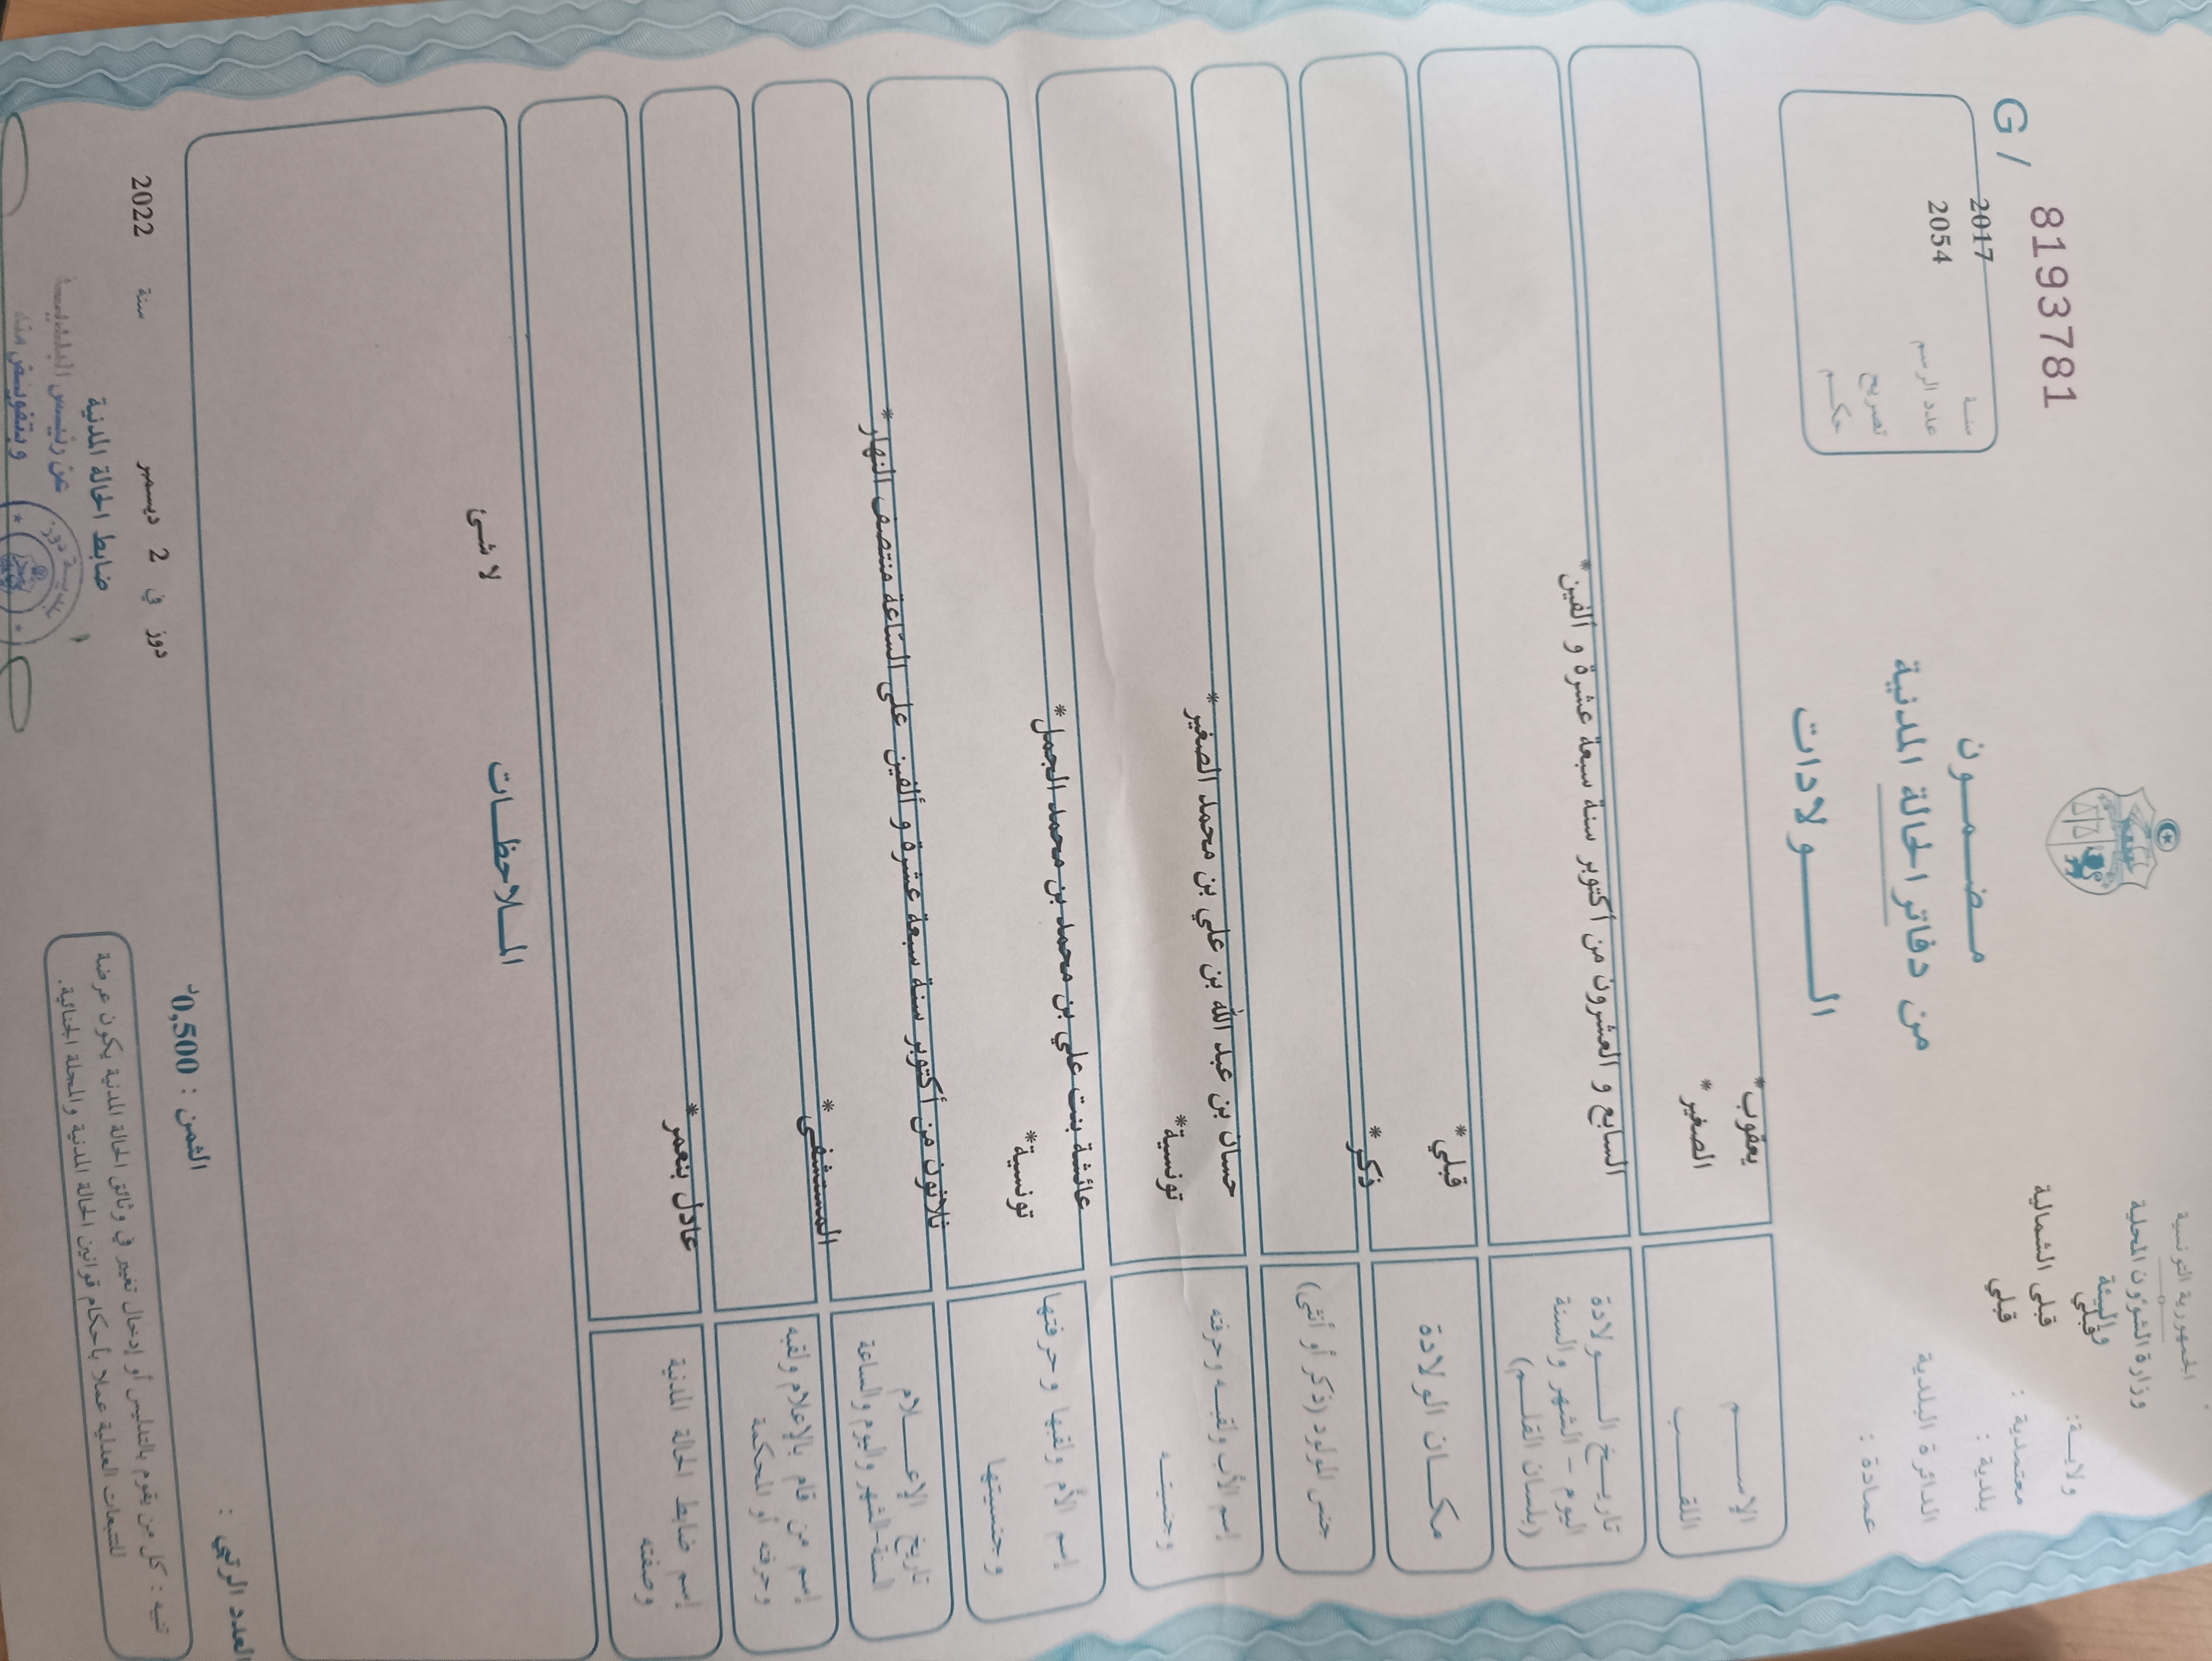 الجمهورية التونسية
وزارة الشؤون المحلية
والبيئة
ولايـــة: قبلي
معتمدية : قبلى الشمالية
بلدية : قبلي
الدائرة البلدية
عمادة :
G / 8193781
سنــة 2017
عدد الرسم 2054
تصريح
حكـــم
مـضــمــون
من دفاتر الحالة المدنية
الـــولادات
الإســـــم يعقوب*
اللقـــــب الصغير*
تاريــخ الـــــولادة
اليوم - الشهر والسنة
(بلسان القلـــم)
السابع و العشرون من أكتوبر سنة سبعة عشرة و ألفين*
مكـــان الولادة قبلي*
جنس المولود (ذكر أو أنثى) ذكر*
إسم الأب ولقبـــه وحرفته حسان بن عبد الله بن علي بن محمد الصغير*
و جنسيتـــه تونسية*
إسم الأم ولقبها و حرفتها عائشة بنت علي بن محمد بن محمد الجمل*
و جنسيتها تونسية*
تاريخ الإعــــلام
السنة-الشهر واليوم والساعة
ثلاثون من أكتوبر سنة سبعة عشرة و ألفين على الساعة منتصف النهار*
إسم من قام بالإعلام ولقبه
وحرفته أو المحكمة
المستشفى*
إسم ضابط الحالة المدنية
وصفته
عادل بنعمر*
المــلاحظــات
لا شئ
العدد الرتبي :
الثمن : 0,500د
دوز في 2 ديسمبر سنة 2022
ضابط الحالة المدنية
عن رئيس البلديـــة
وبتفويـض منـه
بلديـــة دوز
تنبيه : كل من يقوم بالتدليس أو إدخال تغيير في وثائق الحالة المدنية يكون عرضة
للتتبعات العدلية عملا بأحكام قوانين الحالة المدنية والمجلة الجنائية.